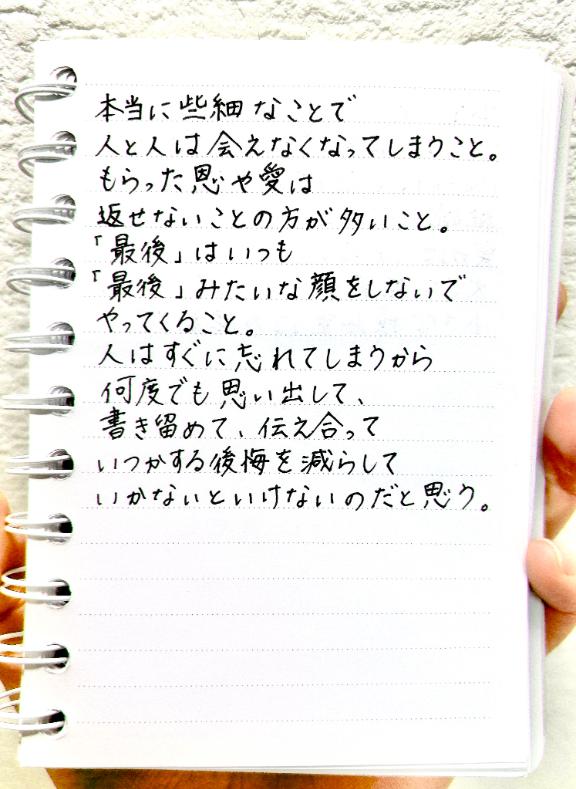 本当に些細なことで
人と人は会えなくなってしまうこと。
もらった恩や愛は
返せないことの方が多いこと。
「最後」はいつも
「最後」みたいな顔をしないで
やってくること。
人はすぐに忘れてしまうから
何度でも思い出して、
書き留めて、伝え合って
いつかする後悔を減らして
いかないといけないのだと思う。